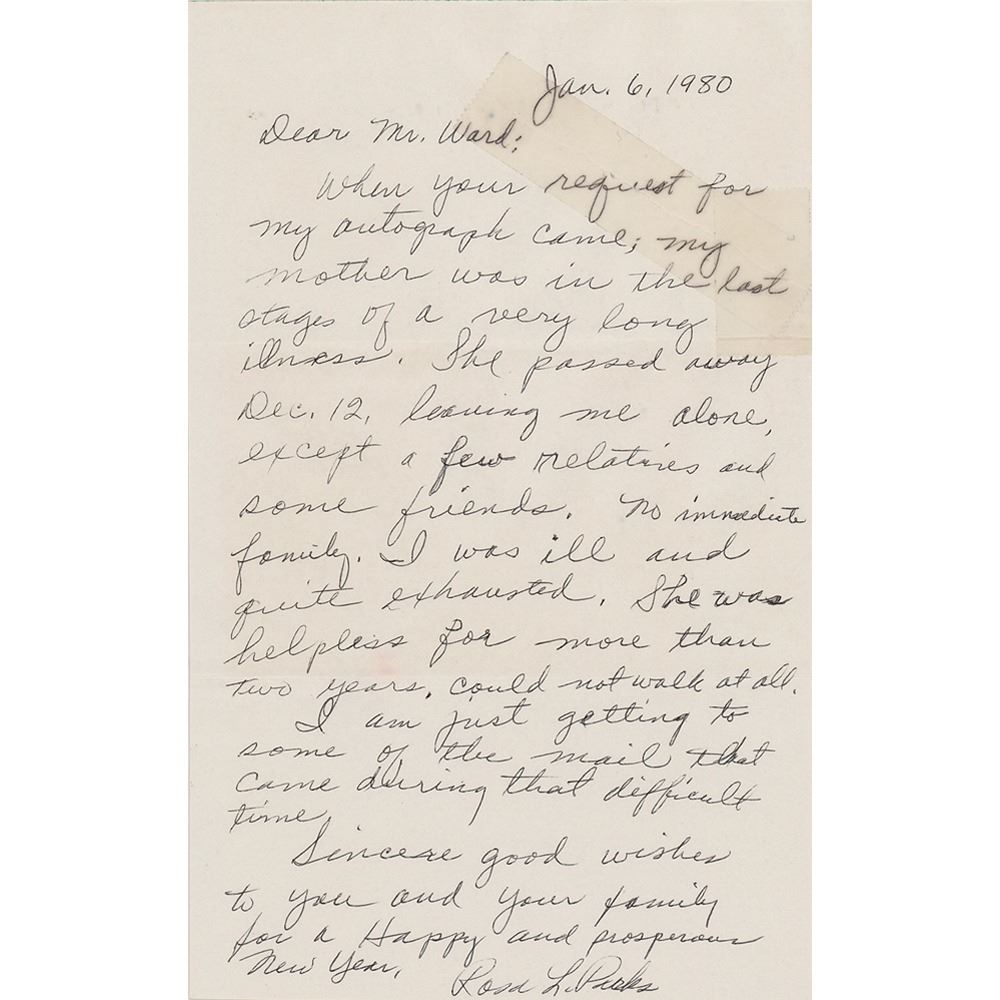 Jan. 6, 1980
Dear Mr. Ward;
When your request for
my autograph came; my
mother was in the last
stages of a very long
illness. She passed away
Dec. 12, leaving me alone,
except a few relatives and
some friends. No immediate
family. I was ill and
quite exhausted. She was
helpless for more than
two years, could not walk at all.
I am just getting to
some of the mail that
came during that difficult
time.
Sincere good wishes
to you and your family
for a Happy and prosperous
New Year.
Rosa L. Parks